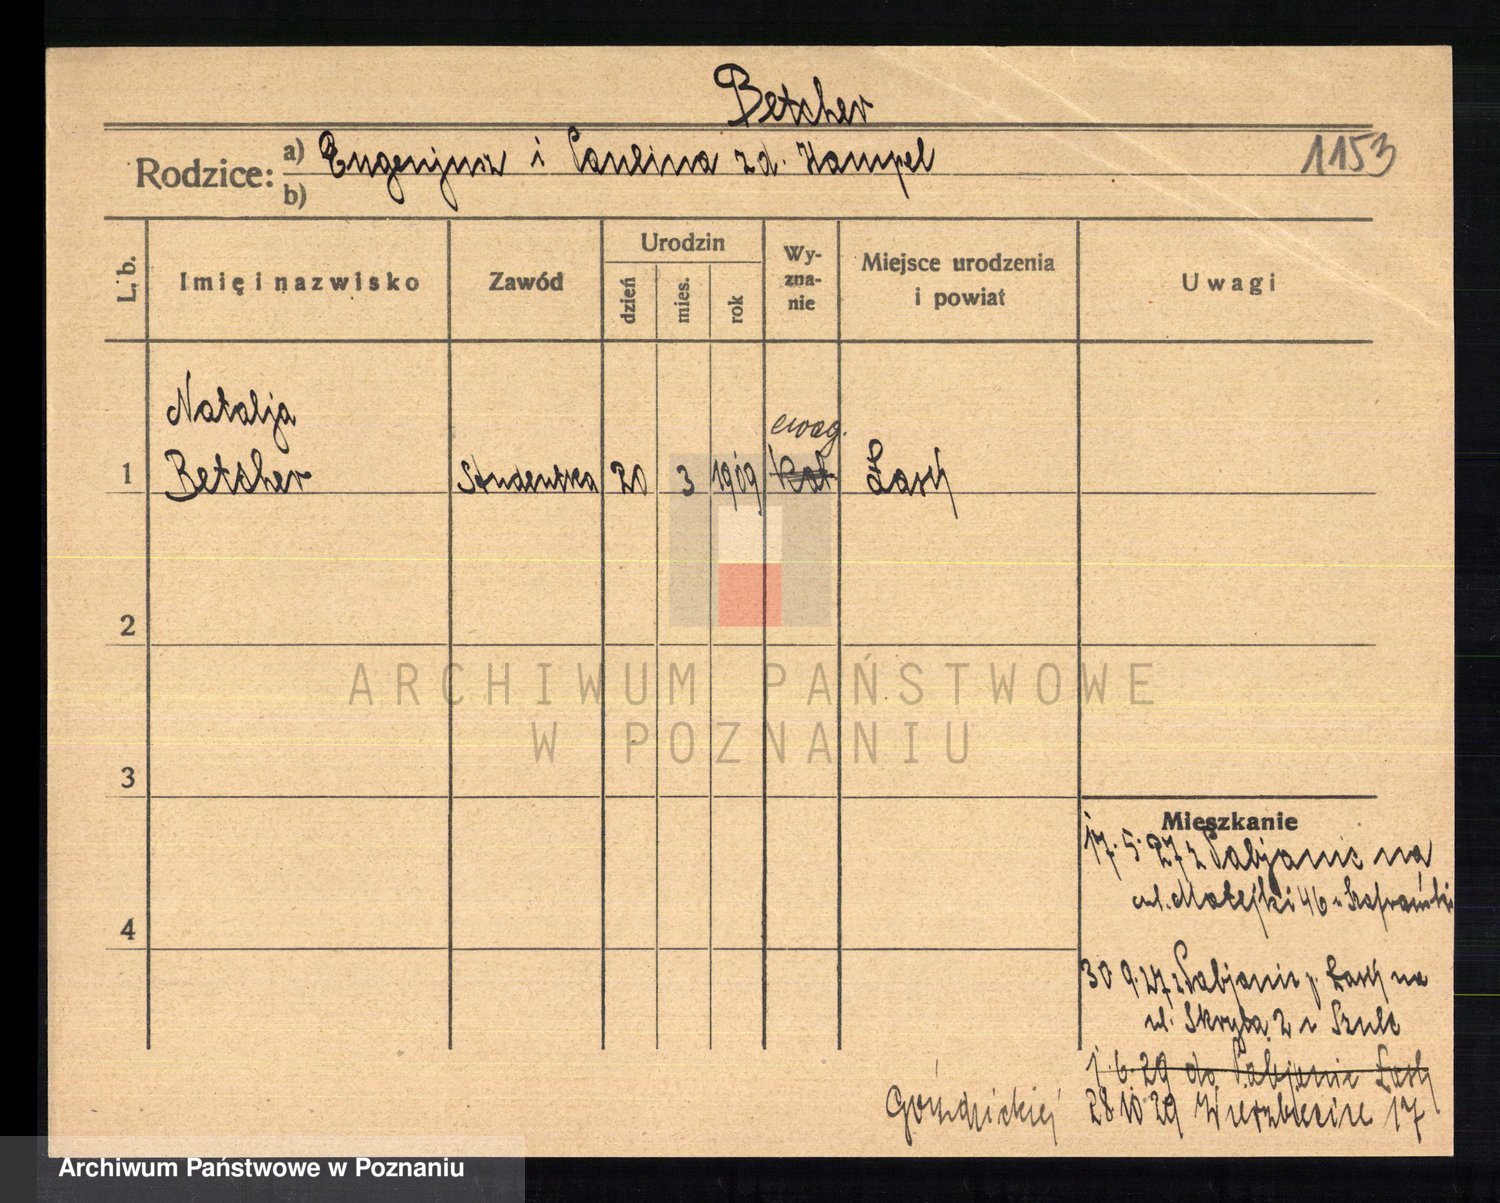 Betcher
1153
Rodzice: a) Eugenjusz i Paulina zd. Hampel
b)
L. b. Imię i nazwisko Zawód Urodzin dzień mies. rok Wy-zna-nie Miejsce urodzenia i powiat Uwagi
Natalja
ewag.
1 Betcher Studentka 20 3 1909 kat Łask
2
3
4
Mieszkanie
17.5.27 z Pabjanic na
ul. Matejki 46 u Szafrański
30 9.27 z Pabjanic p. Łask na
ul. Skryta 2 u Szulc
1.6.29 do Pabjanic Łask
28 10 29 Wierzbięcice 17
ARCHIWUM PAŃSTWOWE
W POZNANIU
Archiwum Państwowe w Poznaniu